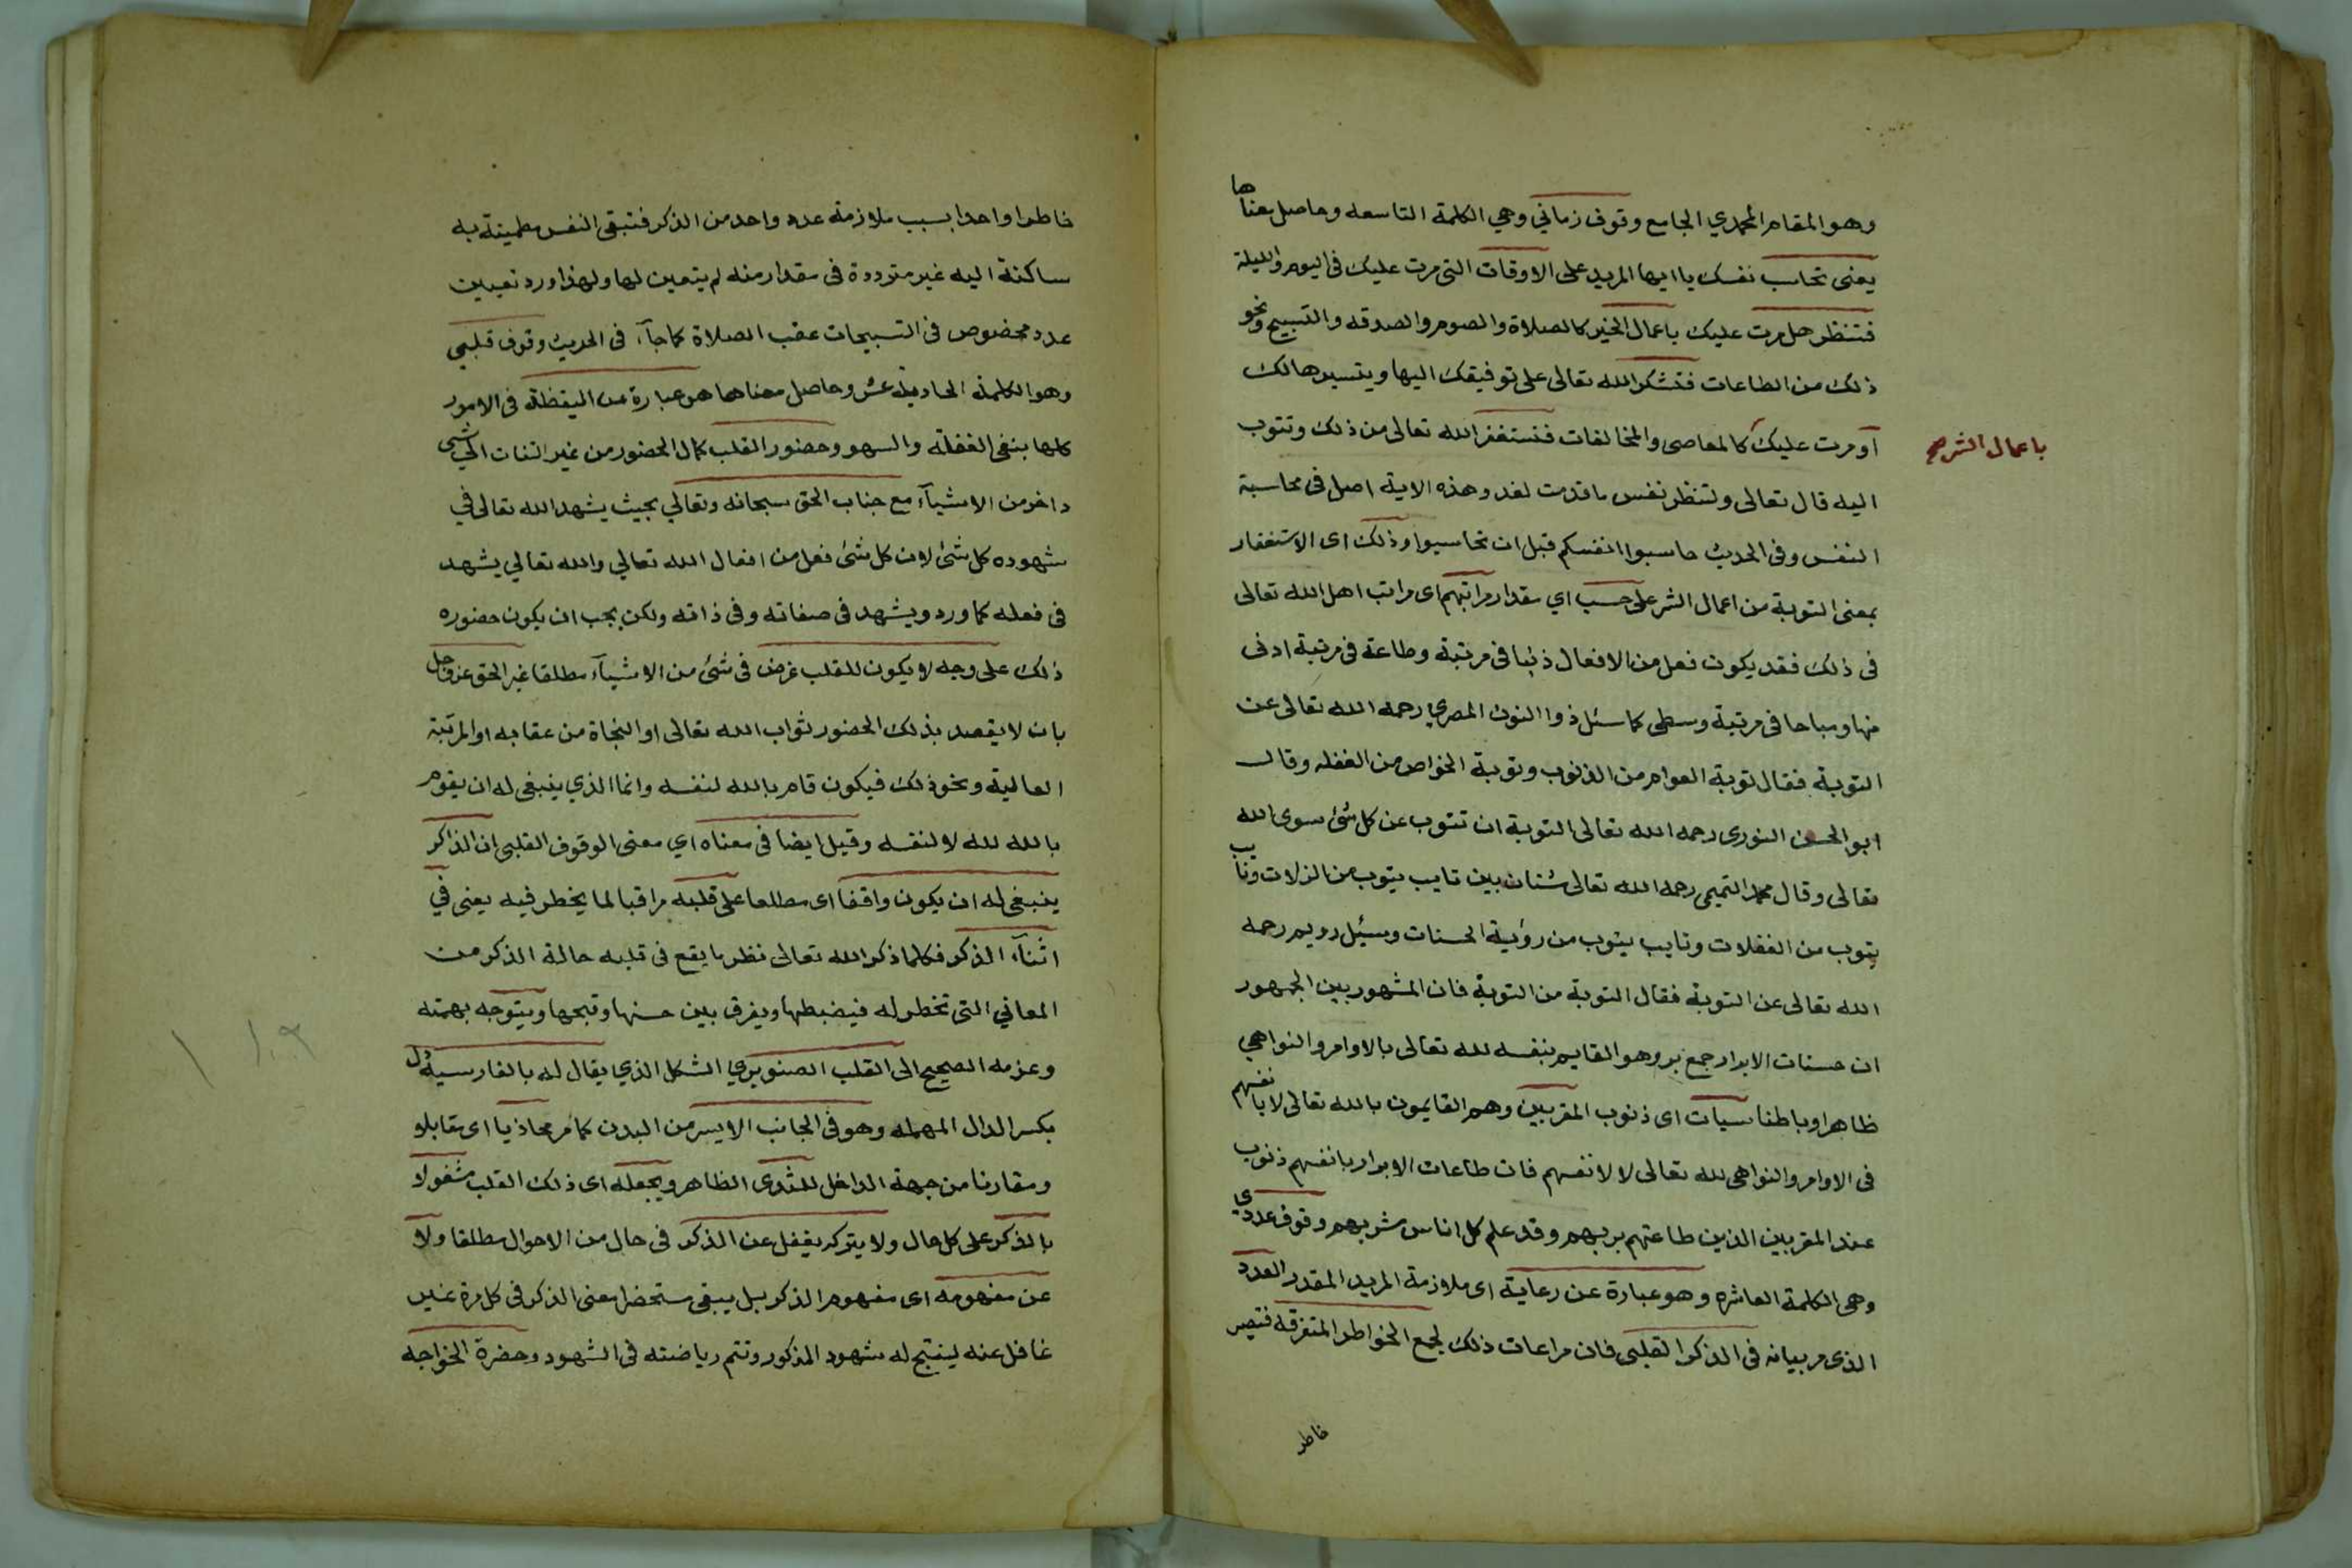 وهو المقام المحمدي الجامع وقوف زماني وهي الكلمة التاسعه وحاصل معناها
يعنى تحاسب نفسك يا ايها المريد على الاوقات التى مرت عليك فى اليوم والليلة
فتنظر هل مرت عليك باعمال الخير كالصلاة والصوم والصدقه والتسبيح ونحو
ذلك من الطاعات فتشكر الله تعالى على توفيقك اليها ويتسيرها لك
آو مرت عليك كالمعاصى والمخالفات فتستغفر الله تعالى من ذلك وتتوب
باعمال الشر صح
اليه قال تعالى ولتنظر نفس ما قدمت لغد وهذه الاية اصل فى محاسبة
النفس وفى الحديث حاسبوا انفسكم قبل ان تحاسبوا وذلك اى الاستغفار
بمعنى التوبة من اعمال الشر على حسب اي مقدار مراتبهم اى مراتب اهل الله تعالى
فى ذلك فقد يكون فعل من الافعال ذنبا فى مرتبة وطاعة فى مرتبة ادنى
منها ومباحا فى مرتبة وسطى كما سئل ذوا النون المصري رحمه الله تعالى عن
التوبة فقال توبة العوام من الذنوب وتوبة الخواص من الغفله وقال
ابو الحسن النورى رحمه الله تعالى التوبة ان تتوب عن كل شئ سوى الله
تعالى وقال محمد التميمى رحمه الله تعالى شتان بين تايب يتوب من الزلات وتايب
يتوب من الغفلات وتايب يتوب من رؤية الحسنات وسيئل رويم رحمه
الله تعالى عن التوبة فقال التوبة من التوبة فان المشهور بين الجمهور
ان حسنات الابرار جمع بر وهو القايم بنفسه لله تعالى بالاوامر والنواهي
ظاهرا وباطنا سيات اى ذنوب المقربين وهم القايمون بالله تعالى لا بانفسهم
فى الاوامر والنواهى لله تعالى لا لانفسهم فان طاعات الابرار بانفسهم ذنوب
عند المقربين الذين طاعتهم بربهم وقد علم كل اناس مشربهم وقوف عددي
وهى الكلمة العاشره وهو عبارة عن رعاية اى ملازمة المريد المقدر العدد
الذى مر بيانه فى الذكر القلبى فان مراعات ذلك لجمع الخواطر المتفرقه فتصير
خاطر
خاطرا واحدا بسبب ملازمة عدد واحد من الذكر فتبقى النفس مطمينة به
ساكنة اليه غير مترددة فى مقدار منه لم يتعين لها ولهذا ورد تعيين
عدد مخصوص فى التسبيحات عقب الصلاة كما جآء فى الحديث وقوف قلبي
وهو الكلمة الحادية عشر وحاصل معناها هو عبارة عن اليقظة فى الامور
كلها بنفى الغفلة والسهو وحضور القلب كمال الحضور من غير التفات الى شى
داخر من الاشيآء مع جناب الحق سبحانه وتعالي بحيث يشهد الله تعالى في
شهوده كل شئ لان كل شئ فعل من افعال الله تعالي والله تعالي يشهد
فى فعله كما ورد ويشهد فى صفاته وفى ذاته ولكن يجب ان يكون حضوره
ذلك على وجه لا يكون للقلب غرض فى شئ من الاشيآء مطلقا غير الحق عز وجل
بان لا يقصد بذلك الحضور ثواب الله تعالى او النجاة من عقابه او المرتبة
العالية ونحو ذلك فيكون قام بالله لنفسه وانما الذي ينبغى له ان يقوم
بالله لله لا لنفسه وقيل ايضا فى معناه اي معنى الوقوف القلبى ان الذاكر
ينبغى له ان يكون واقفا اى مطلعا على قلبه مراقبا لما يخطر فيه يعنى في
اثنآء الذكر فكلما ذكر الله تعالى نظر ما يقع فى قلبه حالة الذكر من
المعاني التى تخطر له فيضبطها ويفرق بين حسنها وقبحها ويتوجه بهمته
وعزمه الصحيح الى القلب الصنوبري الشكل الذي يقال له بالفارسية دل
بكسر الدال المهمله وهو فى الجانب الايسر من البدن كما مر محاذيا اى مقابلا
ومقارنا من جهة الداخل للثدى الظاهر ويجعله اى ذلك القلب مشغولا
بالذكر على كل حال ولا يتركه يغفل عن الذكر فى حال من الاحوال مطلقا ولا
عن مفهومه اى مفهوم الذكر بل يبقى مستحضرا معنى الذكر فى كل مرة غير
غافل عنه لينتج له شهود المذكور وتتم رياضته فى الشهود وحضرة الخواجه